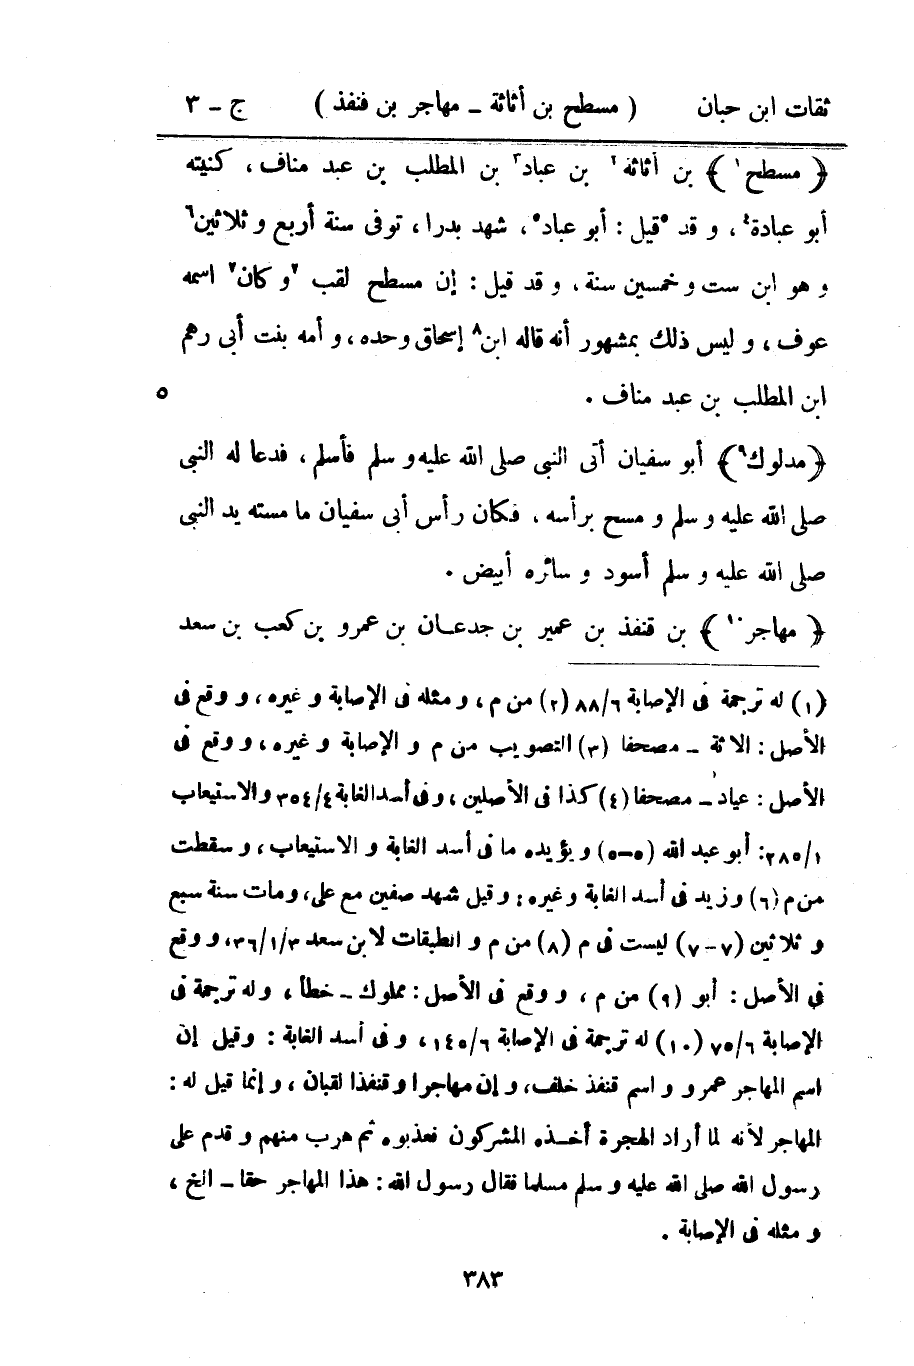 ثقات ابن حبان ( مسطح بن أثاثة ــ مهاجر بن قنفذ ) ج ــ ٣
﴿ مسطح١ ﴾ بن أثاثة٢ بن عباد٣ بن المطلب بن عبد مناف ، كنيته
أبو عبادة٤ ، و قد ٥قيل : أبو عباد٥ ، شهد بدرا ، توفى سنة أربع و ثلاثين٦
و هو ابن ست و خمسين سنة ، و قد قيل : إن مسطح لقب ٧و كان٧ اسمه
عوف ، و ليس ذلك بمشهور أنه قاله ابن٨ إسحاق وحده ، و أمه بنت أبى رهم
ابن المطلب بن عبد مناف . ٥
﴿ مدلوك٩ ﴾ أبو سفيان أتى النبى صلى الله عليه و سلم فأسلم ، فدعا له النبى
صلى الله عليه و سلم و مسح برأسه ، فكان رأس أبى سفيان ما مسته يد النبى
صلى الله عليه و سلم أسود و سائره أبيض .
﴿ مهاجر١٠ ﴾ بن قنفذ بن عمير بن جدعـان بن عمرو بن كعب بن سعد
(١) له ترجمة فى الإصابة ٨٨/٦ (٢) من م ، و مثله فى الإصابة و غيره ، و وقع فى
الأصل : الاثة ــ مصحفا (٣) التصويب من م و الإصابة و غيره ، و وقع فى
الأصل : عياد ــ مصحفا (٤) كذا فى الأصلين ، و فى أسد الغابة ٣٥٤/٤ والاستيعاب
٢٨٥/١: أبو عبد الله (٥-٥) و يؤيده ما فى أسد الغابة و الاستيعاب ، و سقطت
من م (٦) و زيد فى أسد الغابة و غيره : و قيل شهد صفين مع على ، ومات سنة سبع
و ثلاثين (٧-٧) ليست فى م (٨) من م و الطبقات لابن سعد ٣٦/١/٣، و وقع
فى الأصل : أبو (٩) من م ، و وقع فى الأصل : مملوك ــ خطأ ، و له ترجمة فى
الإصابة ٧٥/٦ (١٠) له ترجمة فى الإصابة ١٤٥/٦ ، و فى أسد الغابة : وقيل إن
اسم المهاجر عمرو و اسم قنفذ خلف، و إن مهاجرا و قنفذا لقبان ، و إنما قيل له :
المهاجر لأنه لما أراد الهجرة أخـذه المشركون فعذبوه ثم هرب منهم و قدم على
رسول الله صلى الله عليه و سلم مسلما فقال رسول الله : هذا المهاجر حقا ــ الخ ،
و مثله فى الإصابة .
٣٨٣